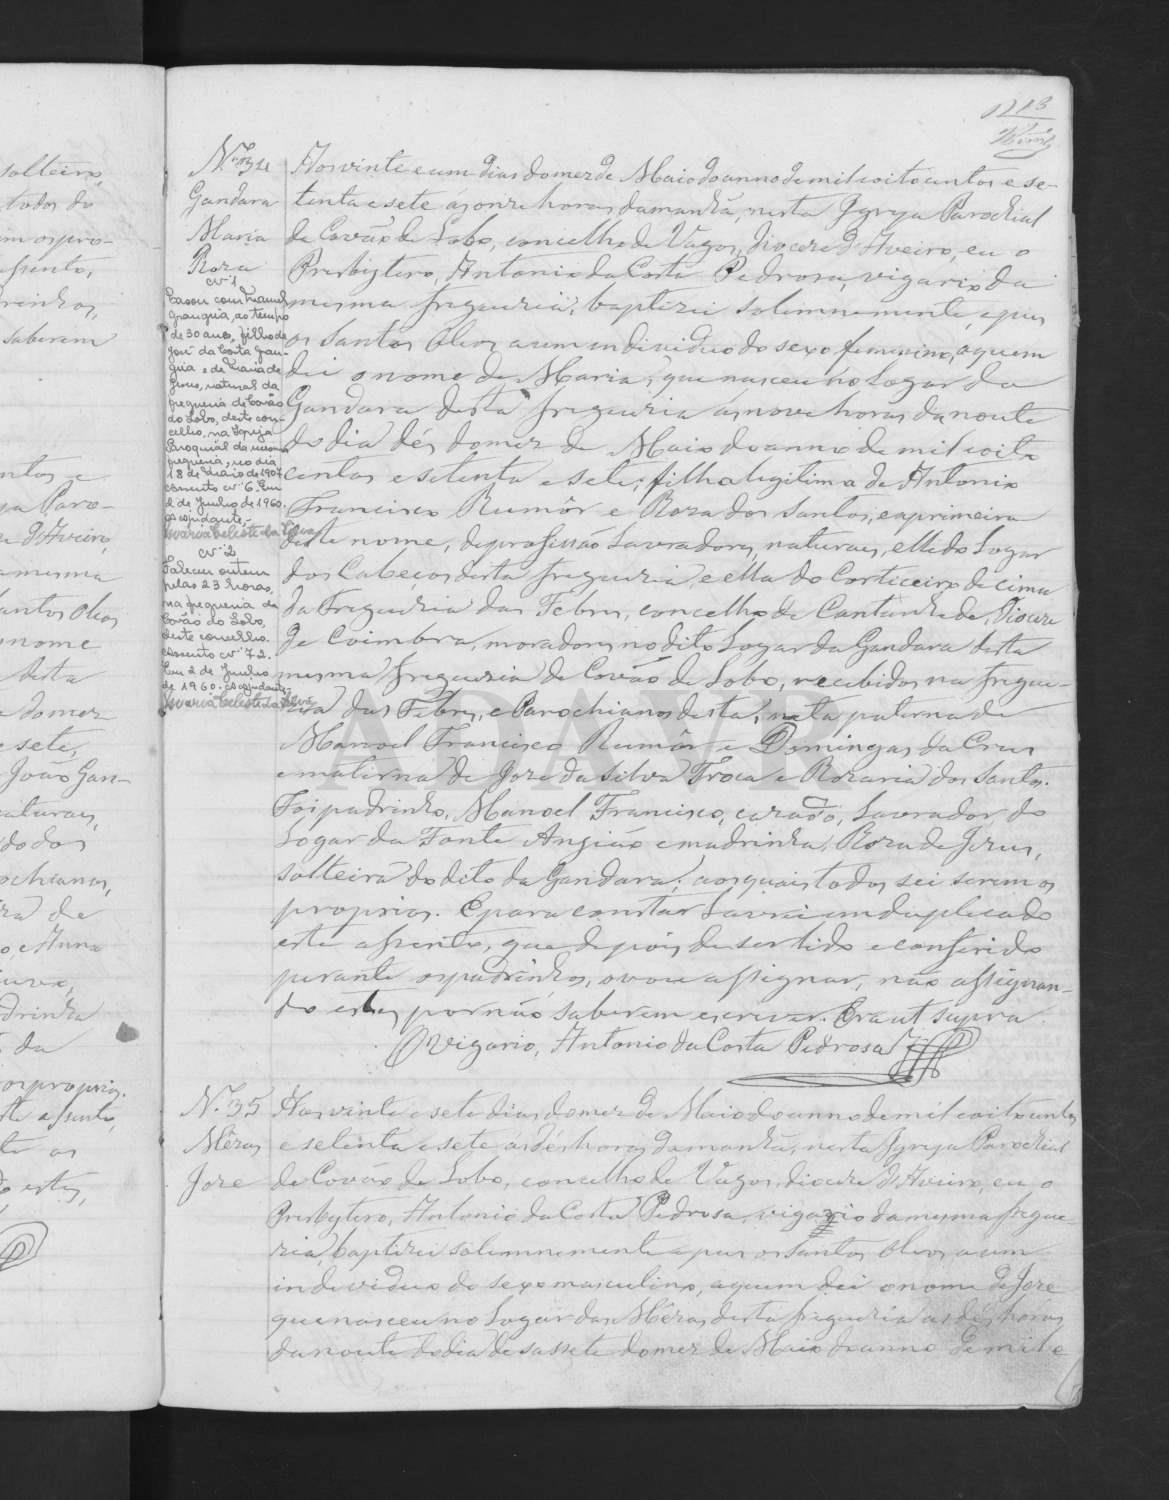 Nº 34
Gandara
Maria
Roza
Nº 1
Casou com Manuel
Grangeia, ao tempo
de 30 anos, filho de
José da Costa Gran-
geia e de Maria de
Jesus, natural da
freguesia de Covão
do Lobo, deste con-
celho, na Igreja
Paroquial da mesma
freguesia, no dia
18 de Maio de 1907
assento nº 6. Em
2 de Junho de 1960.
O ajudante,
Maria Celeste da Silva
Nº 2
Faleceu ontem
pelas 23 horas,
na freguesia de
Covão do Lobo,
deste concelho.
assento nº 72.
Em 2 de Junho
de 1960. O ajudante,
Maria Celeste da Silva
Aos vinte e um dias do mez de Maio do anno de mil e oito centos e se-
tenta e sete as onze horas da manhã, nesta Igreja Parochial
de Covão de Lobo, concelho de Vagos, Diocese d'Aveiro, eu o
Presbytero, Antonio da Costa Pedrosa, vigario da
mesma freguezia, baptizei solemnemente, e puz
os Santos Oleos a um individuo do sexo femenino, a quem
dei o nome de Maria, que nasceu no Logar da
Gandara desta freguezia ás nove horas da noute
do dia dés do mez de Maio do anno de mil e oito
centos e setenta e sete; filha legitima de Antonio
Francisco Rumôr e Roza dos Santos, e a primeira
deste nome, de profissão Lavradores, naturaes, elle do Logar
dos Cabeços desta freguezia, e ella do Corticeiro de cima
da Freguezia das Febres, concelho de Cantanhede, Diocese
de Coimbra, moradores no dito Logar da Gandara desta
mesma freguezia de Covão de Lobo, recebidos na fregue-
zia das Febres, e Parochianos desta, neta paterna de
Manoel Francisco Rumôr e Domingas da Cruz
e materna de Joze da Silva Troca e Rozaria dos Santos.
Foi padrinho, Manoel Francisco, cazado, Lavrador do
Logar da Fonte Angião e madrinha, Roza de Jesus,
solteira do dito da Gandara; aos quais todos sei serem os
proprios. E para constar Lavrei em duplicado
este assento, que depois de ser lido e conferido
perante os padrinhos, o vou assignar, não assignan-
do estes por não saberem escrever. Era ut supra
O Vigario, Antonio da Costa Pedrosa
Nº 35
Mêras
Joze
Aos vinte e sete dias do mez de Maio do anno de mil e oito centos
e setenta e sete ás dés horas da manhã, nesta Igreja Parochial
de Covão de Lobo, concelho de Vagos, diocese d'Aveiro, eu o
Presbytero, Antonio da Costa Pedrosa, vigario da mesma fregue-
zia, baptizei solemnemente e puz os Santos Oleos a um
individuo do sexo masculino, a quem dei o nome de Joze
que nasceu no Logar das Mêras desta freguezia as dés horas
da noute do dia desassete do mez de Maio do anno de mil e
ADAVR